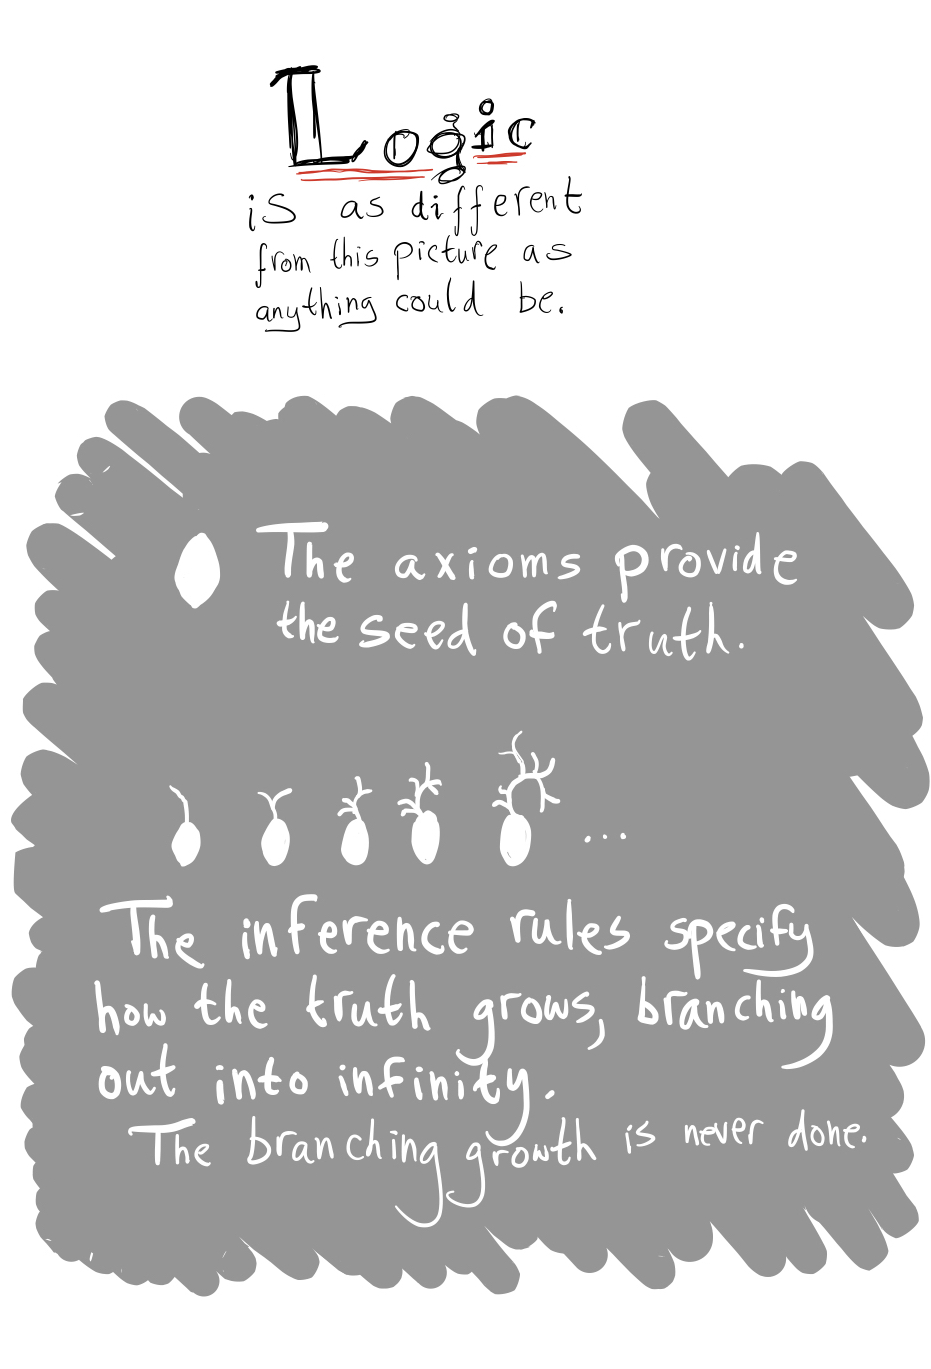 Logic
is as different
from this picture as
anything could be.
The axioms provide
the seed of truth.
...
The inference rules specify
how the truth grows, branching
out into infinity.
The branching growth is never done.